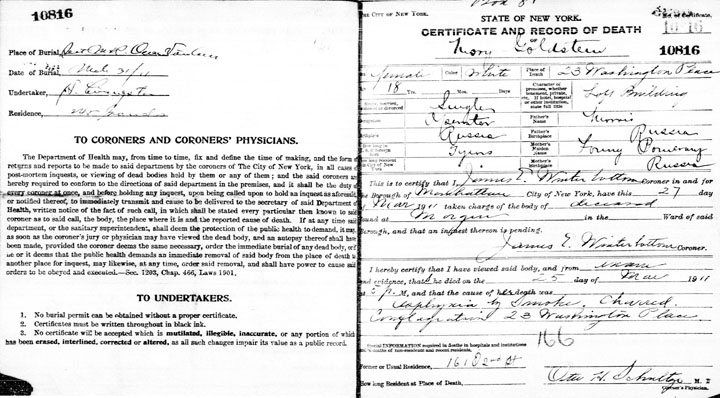 10816
Place of Burial,
Date of Burial, Mch 31/11
Undertaker,
Residence,
TO CORONERS AND CORONERS' PHYSICIANS.
The Department of Health may, from time to time, fix and define the time of making, and the form
returns and reports to be made to said department by the coroners of The City of New York, in all cases
post-mortem inquests, or viewing of dead bodies held by them or any of them; and the said coroners
hereby required to conform to the directions of said department in the premises, and it shall be the duty
every coroner at once, and before holding any inquest, upon being called upon to hold an inquest as aforesaid,
or notified thereof, to immediately transmit and cause to be delivered to the secretary of said Department
Health, written notice of the fact of such call, in which shall be stated every particular then known to said
coroner as to said call, the body, the place where it is and the reported cause of death. If at any time said
department, or the sanitary superintendent, shall deem the protection of the public health to demand, it
as soon as the coroner's jury or physician may have viewed the dead body, and an autopsy thereof shall
been made, provided the coroner deems the same necessary, order the immediate burial of any dead body,
us or it deems that the public health demands an immediate removal of said body from the place of death
another place for inquest, may likewise, at any time, order said removal, and shall have power to cause
orders to be obeyed and executed.—Sec. 1203, Chap. 466, Laws 1901.
TO UNDERTAKERS.
1. No burial permit can be obtained without a proper certificate.
2. Certificates must be written throughout in black ink.
3. No certificate will be accepted which is mutilated, illegible, inaccurate, or any portion of which
has been erased, interlined, corrected or altered, as all such changes impair its value as a public record.
THE CITY OF NEW YORK.
STATE OF NEW YORK.
No. of Certificate,
CERTIFICATE AND RECORD OF DEATH
OF
10816
Mary Goldstein
female Color White Place of Death 23 Washington Place
18 Yrs. Mos. Days
Character of premises, whether tenement, private, etc. If hotel, hospital or other institution, state full title
Loft Building
Single
Father's Name Morris
Operator
Russia
Father's Birthplace Russia
Mother's Maiden Name Fanny
Mother's Birthplace Russia
This is to certify that I James E. Winterbottom Coroner in and for
the Borough of Manhattan City of New York, have this 27 day
of Mar 1911 taken charge of the body of deceased
found at Morgue in the Ward of said
Borough, and that an inquest thereon is pending.
James E. Winterbottom Coroner.
I hereby certify that I have viewed said body, and from exam
and evidence, that she died on the 25 day of Mar 1911
at 5 p. M, and that the cause of her death was
Asphyxia by Smoke. Charred.
Conflagration 23 Washington Place.
166
Special INFORMATION required in deaths in hospitals and institutions
and in deaths of non-residents and recent residents.
Former or Usual Residence, 161 E 2nd St
How long Resident at Place of Death,
Otto H. Schultze M. D.
Coroner's Physician.